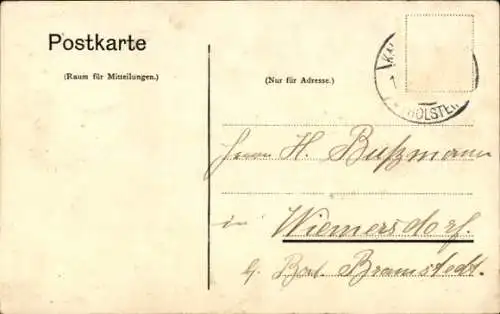 Postkarte
(Raum für Mitteilungen.)
(Nur für Adresse.)
(HOLSTEIN
Herrn H. Bußmann
in Wiemersdorf.
b/ Bad Bramstedt.